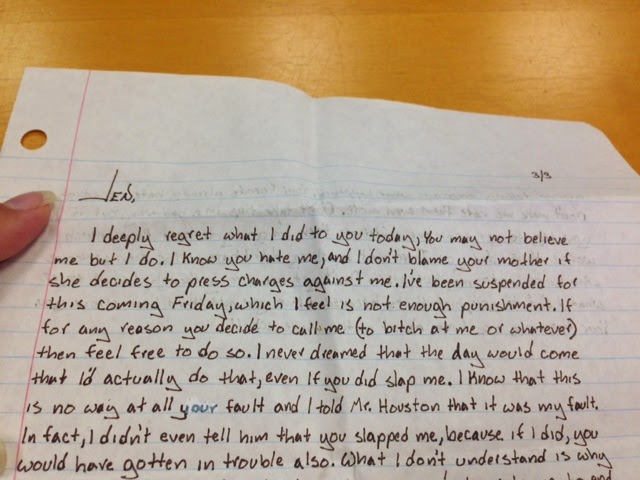 3/3
JEN,
I deeply regret what I did to you today, You may not believe
me but I do. I know you hate me, and I don't blame your mother if
she decides to press charges against me. I've been suspended for
this coming Friday, which I feel is not enough punishment. If
for any reason you decide to call me (to bitch at me or whatever)
then feel free to do so. I never dreamed that the day would come
that I'd actually do that, even if you did slap me. I know that this
is no way at all your fault and I told Mr. Houston that it was my fault.
In fact, I didn't even tell him that you slapped me, because if I did, you
would have gotten in trouble also. What I don't understand is why